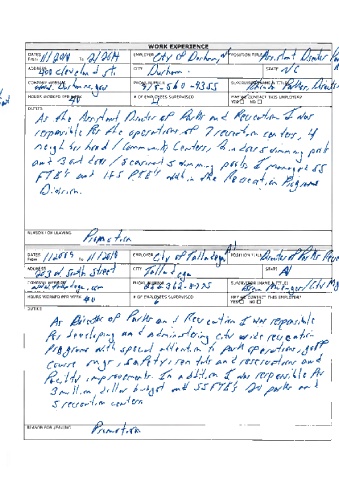 WORK EXPERIENCE
DATES From 11/2014 To 12/2014 EMPLOYER City of Durham, N POSITION TITLE Assistant Director Park
ADDRESS 400 Cleveland St. CITY Durham STATE N/C
COMPANY WEBSITE PHONE NUMBER 919-560-4355 SUPERVISOR (NAME & TITLE)
HOURS WORKED PER WEEK 40 # OF EMPLOYEES SUPERVISED MAY WE CONTACT THIS EMPLOYER? YES NO
DUTIES
As the Assistant Director of Parks and Recreation I was
responsible for the operations of 7 recreation centers, 4
neighborhood / Community Centers, 2 indoor swimming pools
and 3 outdoor / seasonal swimming pools I managed 55
FTE's and 165 PTE's within the Recreation Programs
Division.
REASON FOR LEAVING Promotion
DATES From 11/2009 To 11/2014 EMPLOYER City of Talladega Al POSITION TITLE Director of Parks Recre
ADDRESS 203 W South Street CITY Talladega STATE Al
COMPANY WEBSITE PHONE NUMBER SUPERVISOR (NAME & TITLE) Brian Muenger/City Mg
HOURS WORKED PER WEEK 40 # OF EMPLOYEES SUPERVISED MAY WE CONTACT THIS EMPLOYER? YES NO
DUTIES
As Director of Parks and Recreation I was responsible
for developing and administering city wide recreation
Programs with special attention to park operations, golf
course mgt, safety, rentals and reservations and
Facility improvements. In addition I was responsible for
3 million dollar budget and 55 FTE's 20 parks and
5 recreation centers
REASON FOR LEAVING Promotion